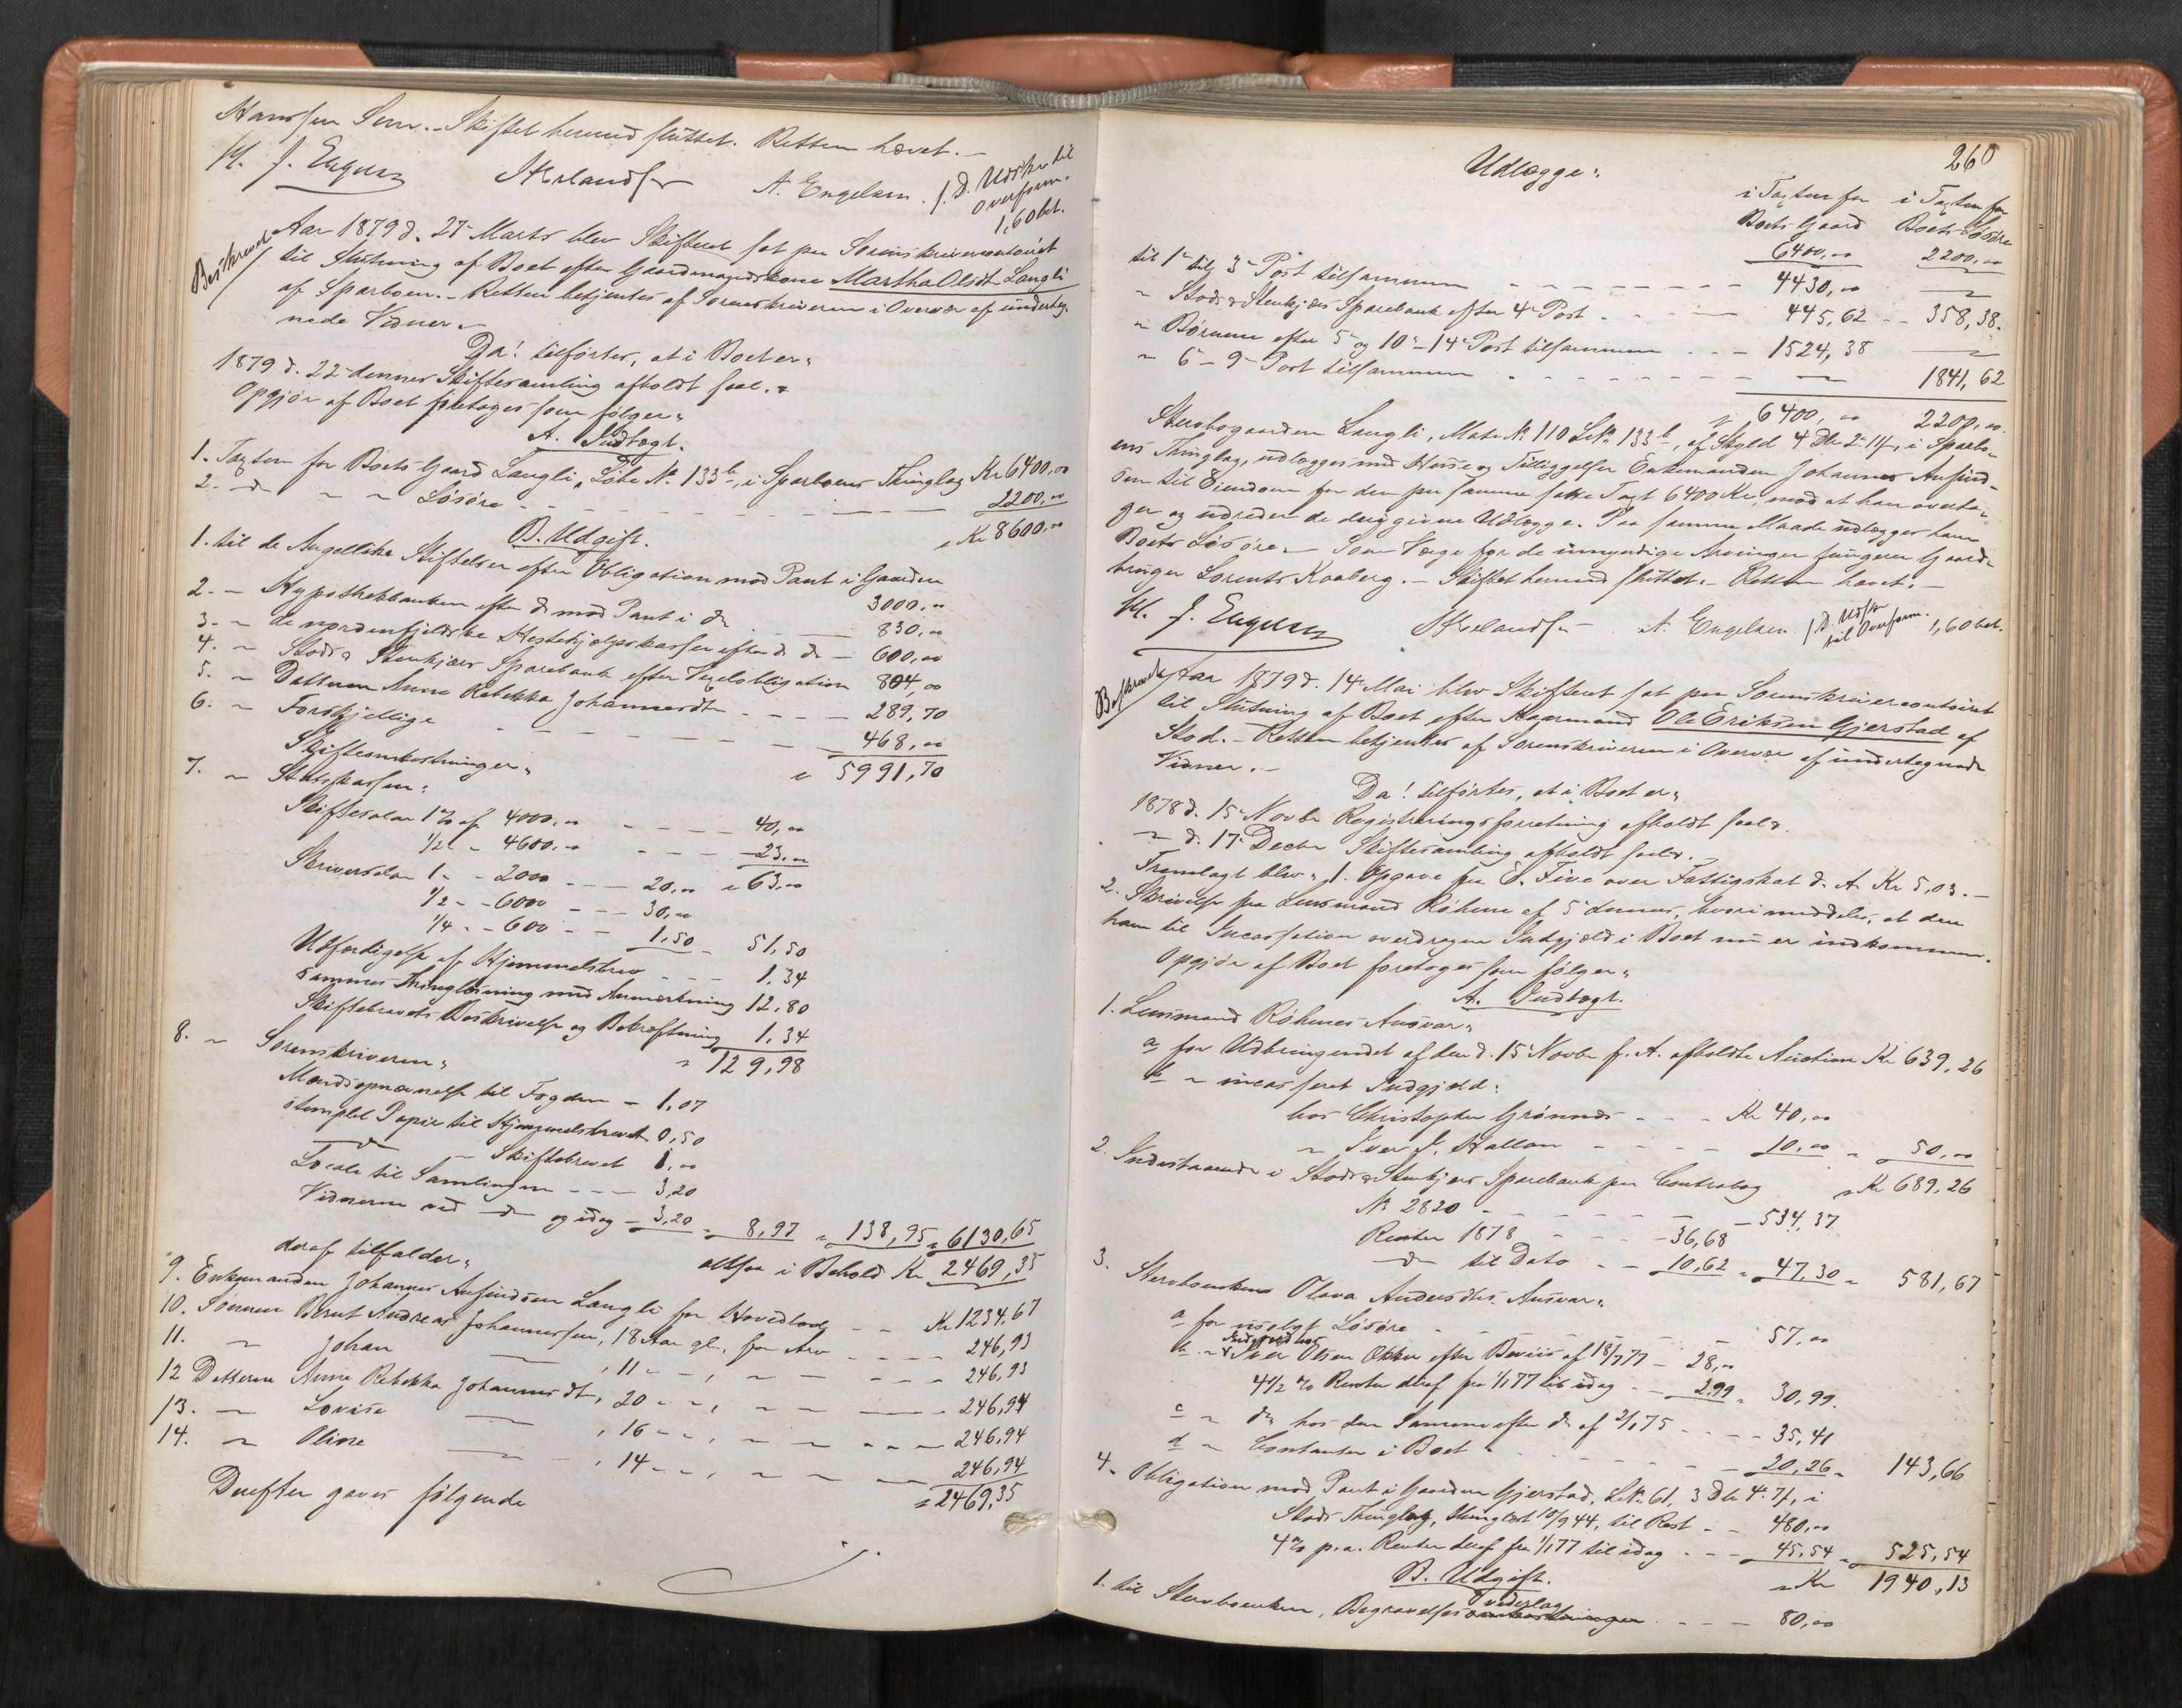 Hanssen Sem. - Skiftet hermed sluttet. Retten hævet. -
M. J. Engers A. Engelsen. f. D. Udskr til
Overform.
1,60 bet.
Beskrevet
Aar 1879 d. 27 Marts blev Skifteret sat paa Sorenskrivercontoiret
til Slutning af Boet efter Gaardmandskone Martha Olsdt Langli
af Sparboen. - Retten betjentes af Sorenskriveren i Overvær af underteg-
nede Vidner. -
Da! tilførtes, at i Boet er:
1879 d. 22 dennes Skiftesamling afholdt saal. :
Opgjør af Boet foretages som følger:
A. Indtægt.
1. Taxten for Boets Gaard Langli, Løbe No 133b, i Sparboens Thinglag Kr 6400,00
2. do " " Løsøre - - - 2200,00
Kr 8600,00
B. Udgift.
1. til de Angellske Stiftelser efter Obligation mod Pant i Gaarden 3000,00
2. - Hypothekbanken efter do mod Pant i do 830,00
3. - de nordenfjeldske Hestehjælpskasser efter do do - 600,00
4. - Stods & Stenkjær Sparebank efter Vexelobligation 804,00
5. - Datteren Anne Rebekka Johannesdtr - - - 289,70
6. - Forskjellige - - - 468,00
" 5991,70
Skifteomkostninger:
7. - Statskassen:
Skiftesalær 1% af 4000,00 - - - 40,00
1/2 - 4600,00 - - - 23,00
" 63,00
Skriversalær 1 - - 2000 - - - 20,00
1/2 - - 6000 - - - 30,00
1/4 - - 600 - - 1,50 - 51,50
Udfærdigelse af Hjemmelsbrev - - - 1,34
Sammes Thinglæsning med Anmærkning 12,80
Skiftebrevets Beskrivelse og Bekræftning 1,34
" 129,98
8. - Sorenskriveren:
Mændsopnævnelse til Fogden - 1,07
stemplet Papir til Hjemmelsbrevet 0,50
do - Skiftebrevet 1,00
Locale til Samlingen - - - 3,20
Vidnerne ved do og idag - 3,20 " 8,97 " 138,95 " 6130,65
altsaa i Behold Kr 2469,35
deraf tilfalder:
9. Enkemanden Johannes Anfindsen Langli for Hovedlod - - Kr 1234,67
10. Sønnen Bernt Andreas Johannessen, 18 Aar gl., for Arv - - - 246,93
11. " Johan - , 11 - - , - - - - 246,93
12 Datteren Anne Rebekka Johannesdt, 20 - - , - - - 246,94
13. - Lovise - , 16 - - , - - - - 246,94
14. - Oline - , 14 - - , - - - 246,94
" 2469,35
Derefter gaves følgende
260
Udlægge:
i Taxten for i Taxten for
Boets Gaard Boets Løsøre
6400,00 2200,00
til 1 til 3 Post tilsammen - - - 4430,00 -
" Stods & Stenkjær Sparebank efter 4 Post - - - 445,62 - - 358,38.
" Børnene efter 5 og 10 - 14 Post tilsammen - - - 1524,38 -
" 6 - 9 Post tilsammen - - - - 1841,62
" 6400,00 2200,00
Stervbogaarden Langli, Matr No 110 LNo 133b, af Skyld 4 Dlr 2 - 1 ß, i Sparbo-
ens Thinglag, udlægges med Huse og Tilliggelser Enkemanden Johannes Anfind-
sen til Eiendom for den paa samme satte Taxt 6400 Kr, mod at han overta-
ger og udreder de deri givne Udlægge. Paa samme Maade udlægges ham
Boets Løsøre. - Som Værge for de umyndige Arvinger fungerer Gaard-
bruger Lorents Kaaberg. - Skiftet hermed sluttet. - Retten hævet. -
M. J. Engers A. Engelsen f. D. Udskr
til Overform. 1,60 bet.
Beskrevet
Aar 1879 d. 14 Mai blev Skifteret sat paa Sorenskrivercontoiret
til Slutning af Boet efter Kaarmand Ole Eriksen Gjerstad af
Stod. - Retten betjentes af Sorenskriveren i Overvær af undertegnede
Vidner. -
Da! tilførtes, at i Boet er:
1878 d. 15 Novbr Registreringsforretning afholdt saal.
" d. 17 Decbr Skiftesamling afholdt saal.
Fremlagt blev: 1. Opgave fra E. Five over Fattigskat d. A. Kr 5,03. -
2. Skrivelse fra Lensmand Røhme af 5 dennes, hvori meddeles, at den
ham til Incassation overdragne Indgjæld i Boet nu er indkommen.
Opgjør af Boet foretages som følger:
A. Indtægt.
1. Lensmand Røhmes Ansvar:
a for Udbringendet af den d. 15 Novbr f. A. afholdte Auction Kr 639,26
b " incasseret Indgjæld:
hos Christopher Grønnes - - - Kr 40,00
" Iver J. Hallan - - - 10,00 " 50,00
" Kr 689,26
2. Indestaaende i Stods & Stenkjær Sparebank paa Contrabog
No 2820 - - - 534,37
Renter 1878 - - - 36,68
do til Dato - - 10,62 " 47,30 " 581,67
3. Stervboenken Olava Andersdtrs Ansvar:
a for usolgt Løsøre - - - 57,00
b " Indgjæld hos Iver Olsen Okker efter Beviis af 18/7 77 - 28,00
4 1/2 % Renter deraf fra 1/1 77 til idag - - 2,99 " 30,99.
c " do hos den Samme efter do af 2/1 75 - - - 35,41
d " Contanter i Boet - - - 20,26 " 143,66
4. Obligation mod Pant i Gaarden Gjerstad, LNo 61, 3 Dlr 4 - 7 ß, i
Stods Thinglag, thinglæst 10/9 44, til Rest - - 480,00
4% p. a. Renter deraf fra 1/1 77 til idag - - - 45,54 " 525,54
" Kr 1940,13
B. Udgift.
1. til Stervboenken, Begravelsesomkostninger vederlag - - - 80,00